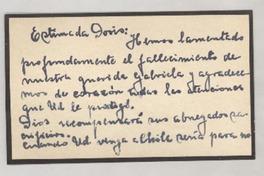 Estimada Doris:
Hemos lamentado
profundamente el fallecimiento de
nuestra querida Gabriela y agradece-
mos de corazón todas las atenciones
que Ud le prodigó.
Dios recompensará sus abnegados sa-
crificios.
cuando Ud venga a Chile sería para no